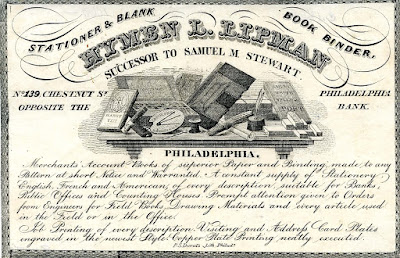 STATIONER & BLANK BOOK BINDER,
HYMEN L. LIPMAN
SUCCESSOR TO SAMUEL M. STEWART
No. 139, CHESTNUT St. PHILADELPHIA
OPPOSITE THE BANK.
PHILADELPHIA,
Merchants' Account Books of superior Paper and Binding, made to any
Pattern at short Notice and Warranted. A constant supply of Stationery
English, French and American, of every description, suitable for Banks,
Public Offices and Counting Houses. Prompt attention given to Orders
from Engineers for Field Books, Drawing Materials and every article used
in the Field or in the Office.
Job Printing of every description. Visiting and Address Card Plates
engraved in the newest Style. Copper Plate Printing neatly executed.